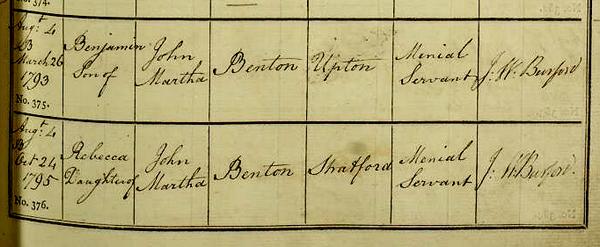 No. 374.
Augt. 4
B
March 26
1793
No. 375.
Benjamin
Son of
John
Martha
Benton
Upton
Menial
Servant
J. W. Burford
Augt. 4
B
Oct 24
1795
No. 376.
Rebecca
Daughter of
John
Martha
Benton
Stratford
Menial
Servant
J. W. Burford.